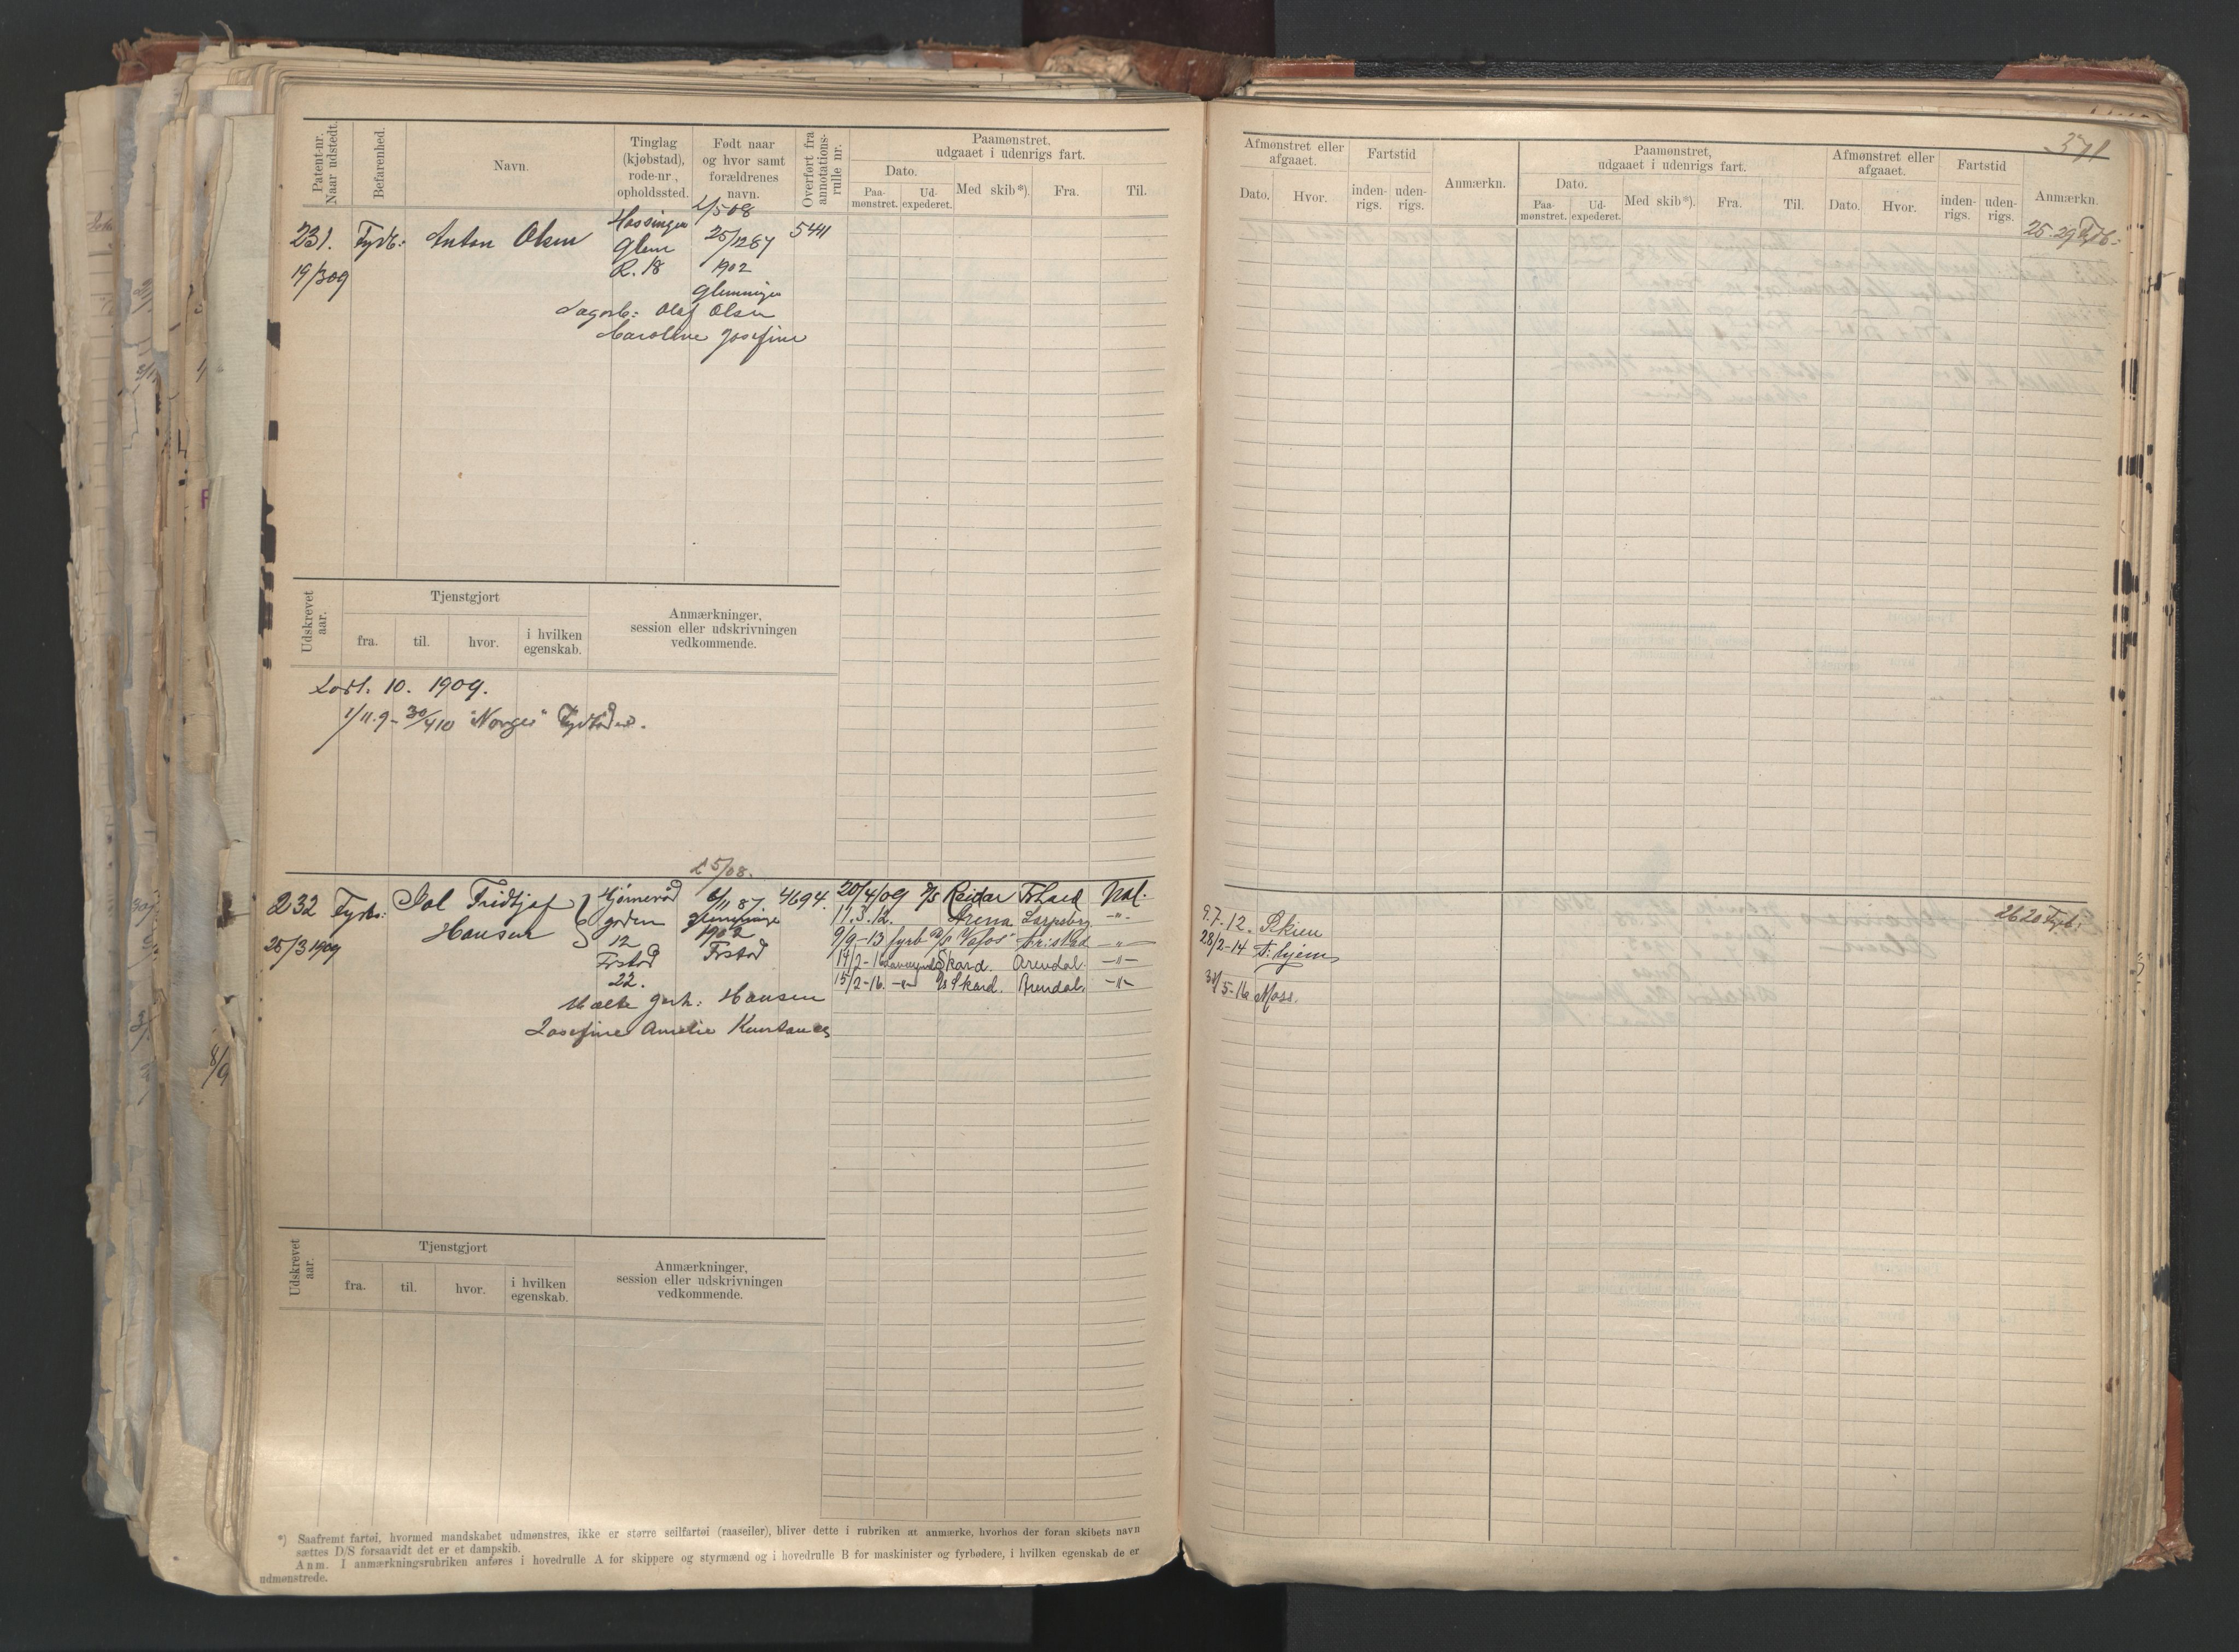 Patent-nr. Naar udstedt.
Befarenhed.
Navn.
Tinglag (kjøbstad), rode-nr., opholdssted.
Født naar og hvor samt forældrenes navn.
Overført fra annotations-rulle nr.
Paamønstret, udgaaet i udenrigs fart.
Dato.
Paa-mønstret.
Ud-expederet.
Med skib*).
Fra.
Til.
231. Fyrb: Anton Olsen
19/3 09
Glem
R. 18
25/12 87
1902
5441
Olaf Olsen
Caroline Josefine
Udskrevet aar.
Tjenstgjort
fra.
til.
hvor.
i hvilken egenskab.
Anmærkninger, session eller udskrivningen vedkommende.
10. 1909.
1/11.9 - 30/4 10 "Norge"
5/08.
232 Fyrb: Fridtjof
Hansen
25/3 1909
12
Frstad
22.
6/11 87.
1902
Frstad
4694.
Hansen
Josefine Amelie
20/4/09 D/S Reidar Frstad Nol.
11.3.12. Arena Sarpsborg -"-
9/9-13 fyrb D/S Vafos Fr.stad -"-
14/2-16 Skard. Arendal. -"-
15/2-16. -"- D/S Skard. Arendal. -"-
Udskrevet aar.
Tjenstgjort
fra.
til.
hvor.
i hvilken egenskab.
Anmærkninger, session eller udskrivningen vedkommende.
*) Saafremt fartøi, hvormed mandskabet udmønstres, ikke er større seilfartøi (raaseiler), bliver dette i rubriken at anmærke, hvorhos der foran skibets navn
sættes D/S forsaavidt det er et dampskib.
Anm. I anmærkningsrubriken anføres i hovedrulle A for skippere og styrmænd og i hovedrulle B for maskinister og fyrbødere, i hvilken egenskab de er
udmønstrede.
371
Afmønstret eller afgaaet.
Dato.
Hvor.
Fartstid
inden-rigs.
uden-rigs.
Anmærkn.
Paamønstret, udgaaet i udenrigs fart.
Dato.
Paa-mønstret.
Ud-expederet.
Med skib*).
Fra.
Til.
Afmønstret eller afgaaet.
Dato.
Hvor.
Fartstid
inden-rigs.
uden-rigs.
Anmærkn.
25.29 Fyrb:
9.7.12. Skien
28/2-14 F: hjem
5-16 Moss.
2620 Fyrb: